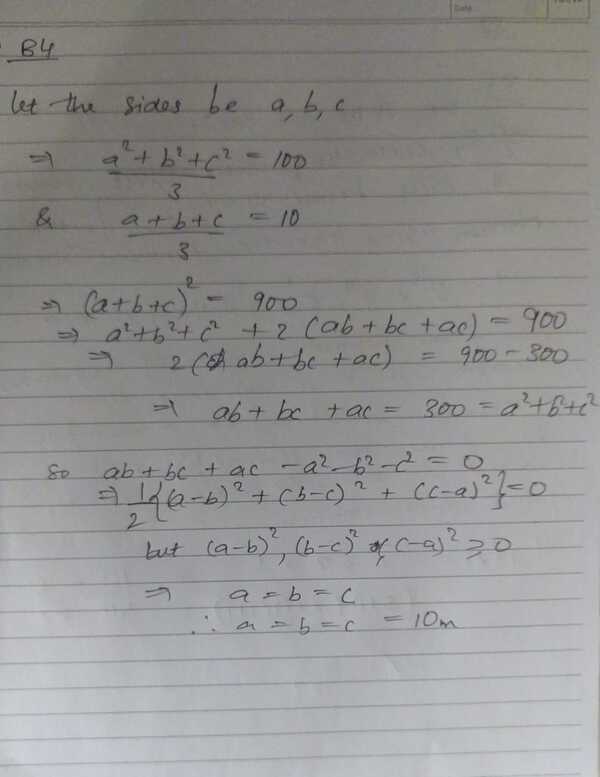 Date
B4
let the sides be a, b, c
⇒ (a² + b² + c²)/3 = 100
& (a + b + c)/3 = 10
⇒ (a+b+c)² = 900
⇒ a² + b² + c² + 2 (ab + bc + ac) = 900
⇒ 2 (ab + bc + ac) = 900 - 300
⇒ ab + bc + ac = 300 = a² + b² + c²
so ab + bc + ac - a² - b² - c² = 0
⇒ 1/2 {(a-b)² + (b-c)² + (c-a)²} = 0
but (a-b)², (b-c)² & (c-a)² ≥ 0
⇒ a = b = c
∴ a = b = c = 10m